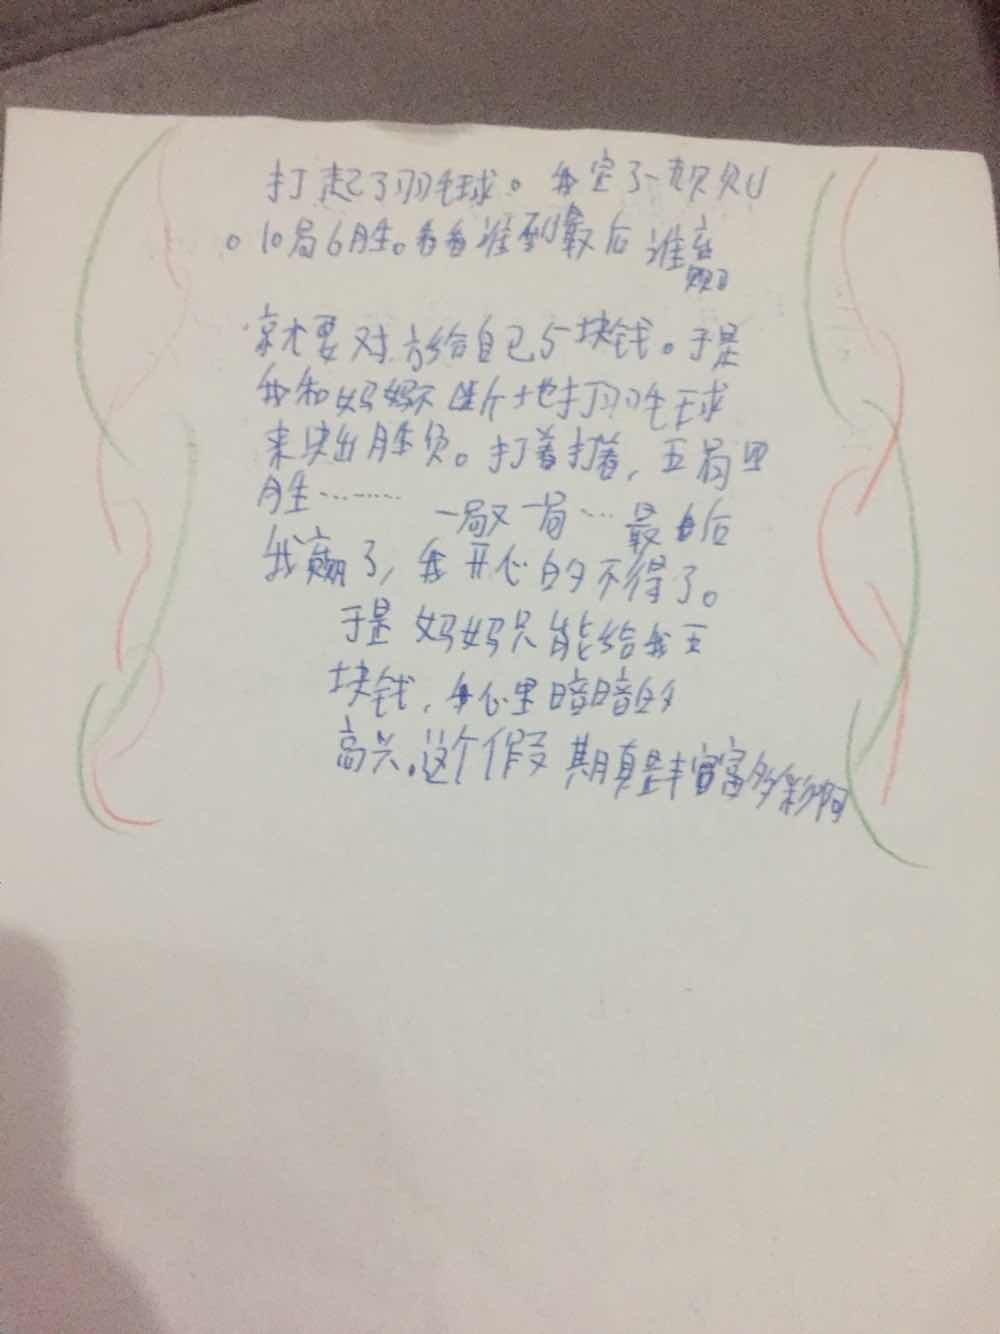 打起了羽毛球。我定了一规则
。10局6胜。看看谁到最后谁赢
就要对方给自己5块钱。于是
我和妈妈不断地打羽毛球
来决出胜负。打着打着，五局四
胜………
一局又一局…最后
我赢了，我开心的不得了。
于是妈妈只能给我五
块钱，我心里暗暗的
高兴。这个假期真是丰富多彩啊